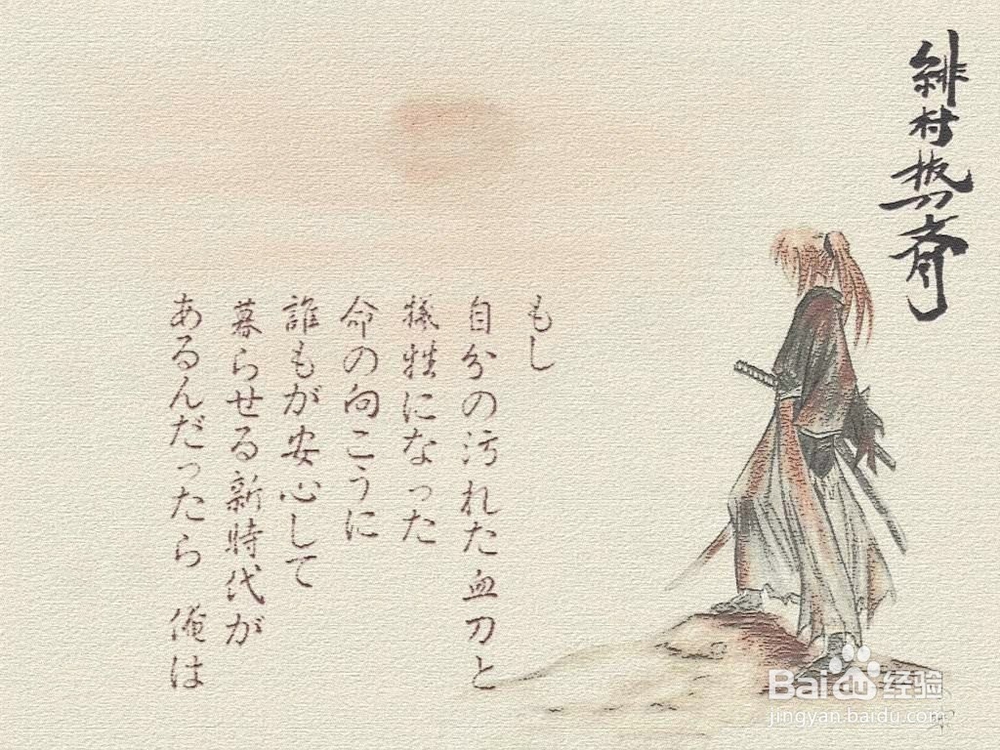 緋村抜刀斎
もし
自分の汚れた血刀と
犠牲になった
命の向こうに
誰もが安心して
暮らせる新時代が
あるんだったら 俺は
Baidu 经验
jingyan.baidu.com